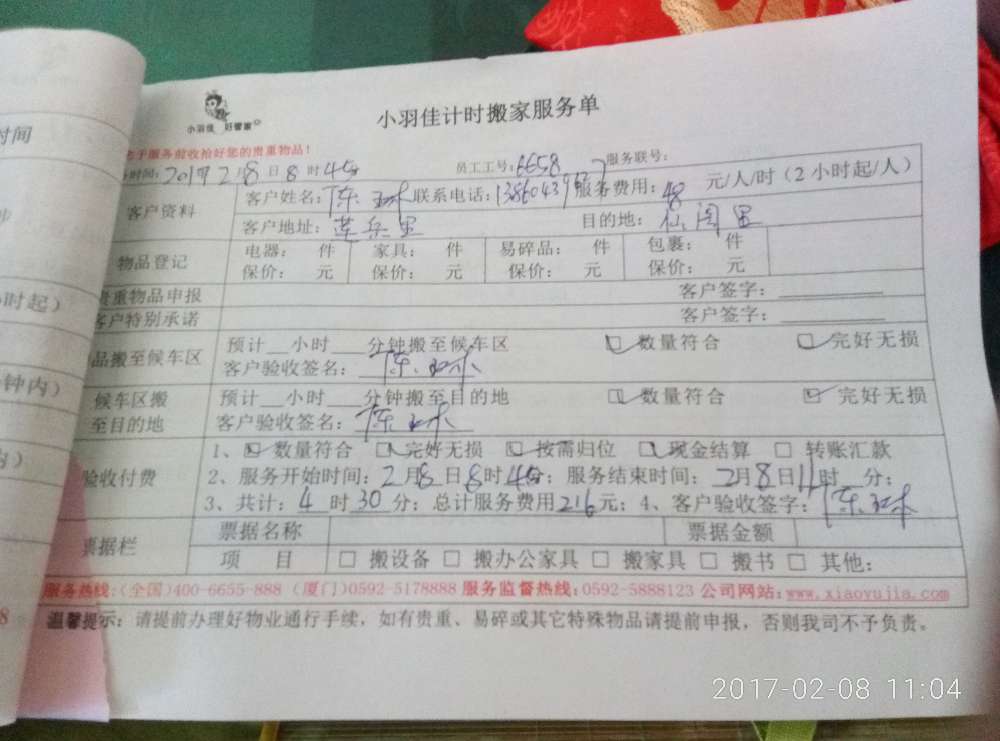 时间
时起）
钟内）
内）
8
小羽佳 好管家
小羽佳计时搬家服务单
于服务前收拾好您的贵重物品！
务时间：2017年2月8日8时45分 员工工号：6658 服务联号：
客户资料 客户姓名：陈 联系电话： 服务费用：48 元/人/时（2小时起/人）
客户地址：莲兵里 目的地：仙阁里
物品登记 电器： 件 家具： 件 易碎品： 件 包裹： 件
保价： 元 保价： 元 保价： 元 保价： 元
贵重物品申报 客户签字：
客户特别承诺 客户签字：
品搬至候车区 预计__小时___分钟搬至候车区 ☑ 数量符合 ☑ 完好无损
客户验收签名：陈
候车区搬至目的地 预计__小时___分钟搬至目的地 ☑ 数量符合 ☑ 完好无损
客户验收签名：陈
验收付费 1、☑ 数量符合 ☑ 完好无损 ☑ 按需归位 ☑ 现金结算 □ 转账汇款
2、服务开始时间：2月8日8时45分；服务结束时间：2月8日11时 分；
3、共计：4时30分；总计服务费用216元；4、客户验收签字：陈
票据栏 票据名称 票据金额
项 目 □ 搬设备 □ 搬办公家具 □ 搬家具 □ 搬书 □ 其他：
服务热线：（全国）400-6655-888 （厦门）0592-5178888 服务监督热线：0592-5888123 公司网站：www.xiaoyujia.com
温馨提示：请提前办理好物业通行手续，如有贵重、易碎或其它特殊物品请提前申报，否则我司不予负责。
2017-02-08 11:04